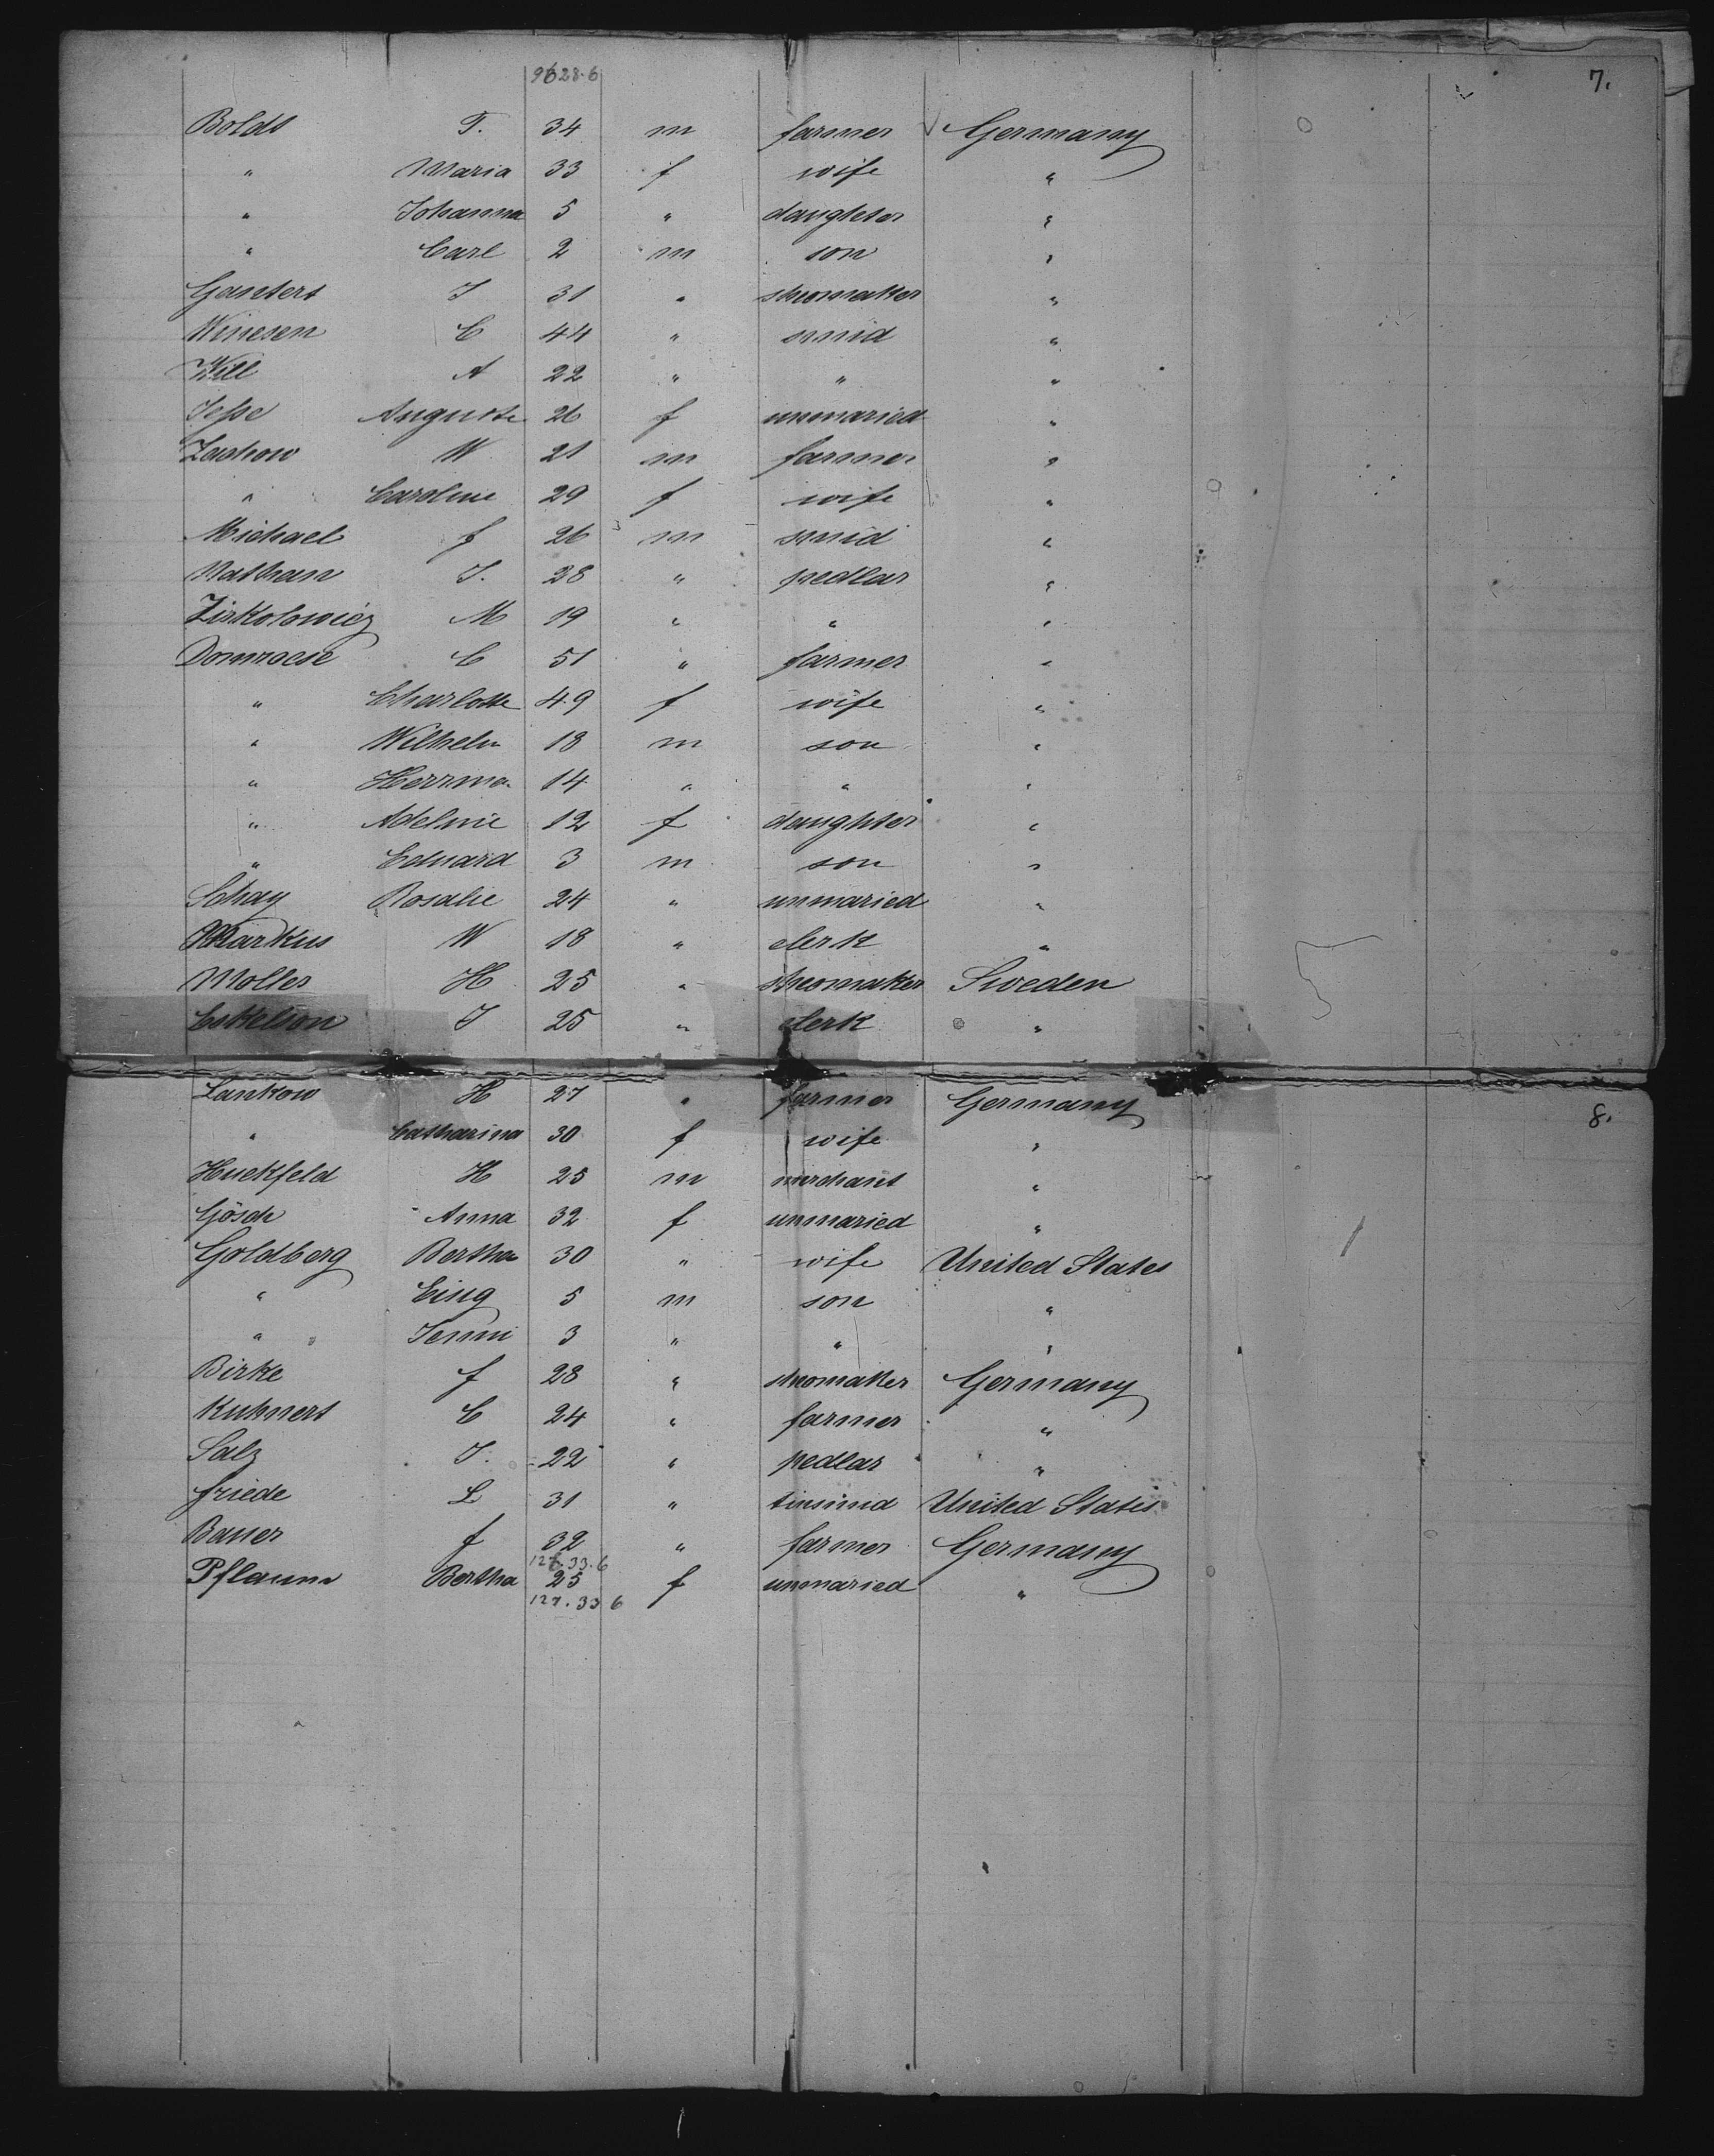 9628.6
7.
Boldt T. 34 m farmer Germany
" Maria 33 f wife "
" Johanna 5 " daughter "
" Carl 2 m son "
Gantert J 31 " shomaker "
Winesen C 44 " smid "
Will A 22 " " "
Jesse Auguste 26 f unmaried "
Zachow W 21 m farmer "
" Caroline 29 f wife "
Michael f 26 m smid "
Nathan J. 28 " pedlar "
Ziskolowicz M 19 " " "
Domroese C 51 " farmer "
" Charlotte 49 f wife "
" Wilhelm 18 m son "
" Herrma 14 " " "
" Adeline 12 f daughter "
" Eduard 3 m son "
Schay Rosalie 24 " unmaried "
Markus W 18 " clerk "
Moller H 25 " sheomaker Sweden
Eskelson J 25 " clerk "
Lankow H 27 " farmer Germany
8.
" Catharina 30 f wife "
Huckfeld H 25 m merchant "
Gösch Anna 32 f unmaried "
Goldberg Bertha 30 " wife United States
" 5 m son "
" Jenni 3 " " "
Birke f 28 " shomaker Germany
Kuhnert C 24 " farmer "
Salz J. 22 " pedlar "
Friede L 31 " tinsmid United States
Bauer f 32 " farmer Germany
127.33.6
Pflaum Bertha 25 f unmaried "
127.33 6